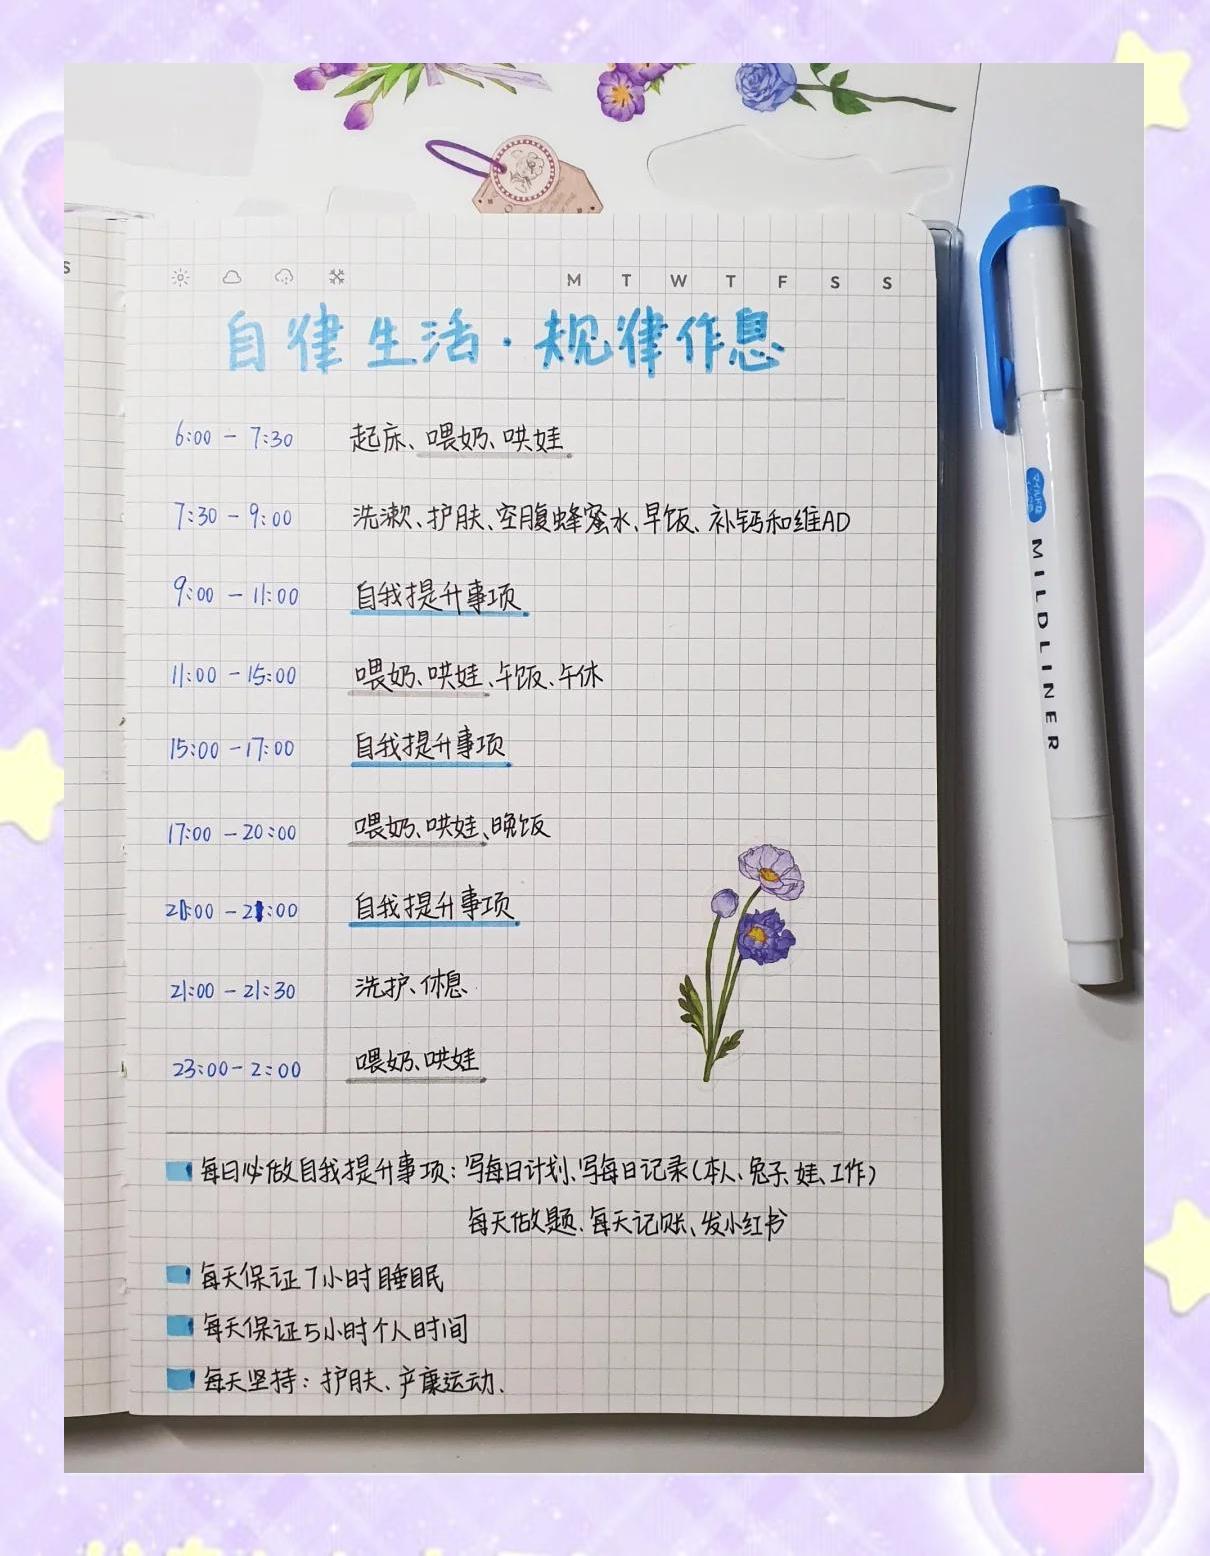 S
M T W T F S S
自律生活·规律作息
6:00 - 7:30 起床、喂奶、哄娃
7:30 - 9:00 洗漱、护肤、空腹蜂蜜水、早饭、补钙和维AD
9:00 - 11:00 自我提升事项
11:00 - 15:00 喂奶、哄娃、午饭、午休
15:00 - 17:00 自我提升事项
17:00 - 20:00 喂奶、哄娃、晚饭
20:00 - 21:00 自我提升事项
21:00 - 21:30 洗护、休息
23:00 - 2:00 喂奶、哄娃
每日必做自我提升事项：写每日计划、写每日记录(本人、兔子、娃、工作)
每天做题、每天记账、发小红书
每天保证7小时睡眠
每天保证5小时个人时间
每天坚持：护肤、产康运动、
MILDLINER